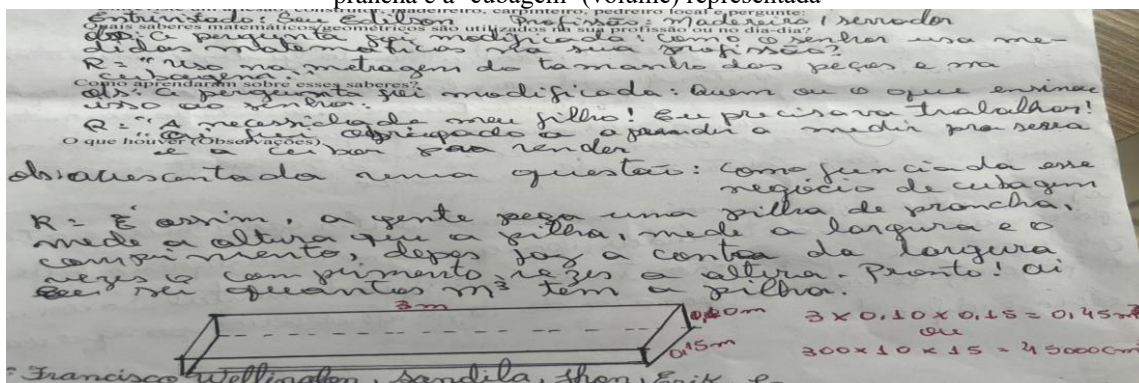 prancha e a "cubagem" (volume) representada
Entrevistado: Seu Edilson Profissão: Madereiro / serrador
Quais saberes matemáticos/geométricos são utilizados na sua profissão ou no dia-dia?
obs: a pergunta foi modificada: como o senhor usa me-
didas matemáticas na sua profissão?
R = "Uso na metragem do tamanho das peças e na
cubagem."
Como aprenderam sobre esses saberes?
obs: a pergunta foi modificada: Quem ou o que ensinou
isso ao senhor.
R = "A necessidade meu filho! Eu precisava trabalhar!
fui obrigado a aprendi a medir pra serra
O que houver (Observações)
e a cubar pra vender
acrescentada uma questão: como funciona da esse
negócio de cubagem
R = É assim, a gente pega uma pilha de prancha,
mede a altura a pilha, mede a largura e o
comprimento, depos faz a conta da largura
vezes o comprimento, vezes a altura. Pronto! ai
sei quantos m³ tem a pilha.
3m
0,10m 3 x 0,10 x 0,15 = 0,45m³
ou
0,15m 300 x 10 x 15 = 45000cm³
Francisco Wellington, Sandila, Jhon, Erik e